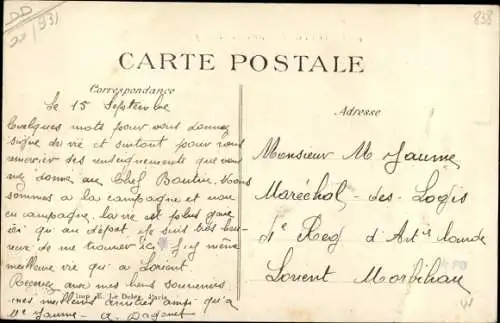 DD
(93)
838
CARTE POSTALE
Correspondance
Adresse
Le 15 Septembre
Quelques mots pour vous donner
signe de vie et surtout pour vous
remercier des renseignements que vous
avez donné au Chef Nous
sommes a la campagne et non
en campagne. la vie est plus gaie
ici qu au dépot je suis très heu-
reux de me trouver ici j'y mène
meilleure vie qu a Lorient.
Recevez avec mes bons souvenirs
mes meilleures amitiés ainsi qu'a
Mme Jaume
Imp. E. Le Deley, Paris
Monsieur M Jaume
Maréchal-des-Logis
Reg d'Artie lourde
Lorient Morbihan